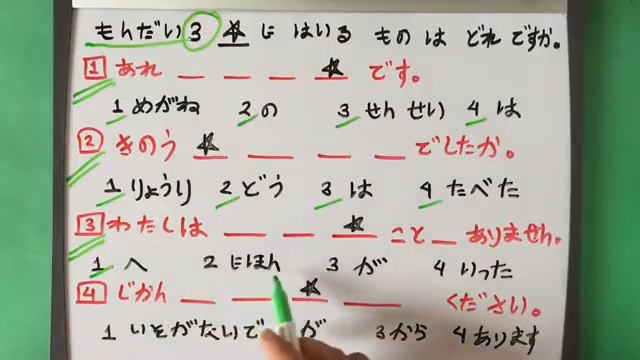 もんだい3 ★ に はいる もの は どれ ですか。
1 あれ _ _ _ ★ です。
1 めがね 2 の 3 せんせい 4 は
2 きのう ★ _ _ _ でしたか。
1 りょうり 2 どう 3 は 4 たべた
3 わたしは _ _ ★ こと _ ありません。
1 へ 2 にほん 3 が 4 いった
4 じかん _ _ ★ _ ください。
1 いそがないで が 3 から 4 あります